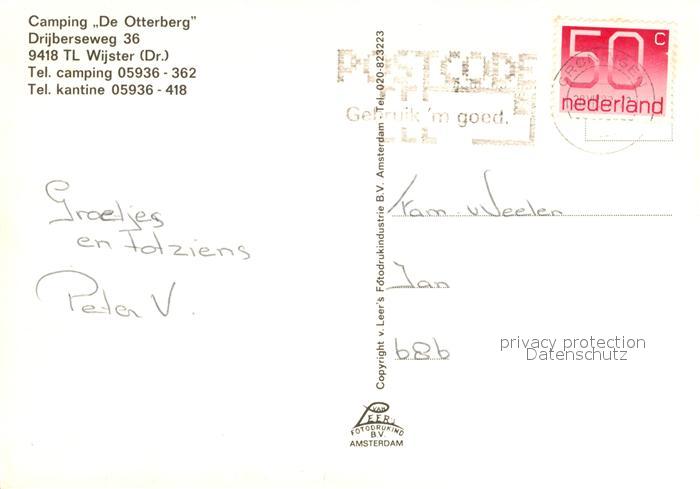 Camping „De Otterberg"
Drijberseweg 36
9418 TL Wijster (Dr.)
Tel. camping 05936 - 362
Tel. kantine 05936 - 418
Groetjes
en totziens
Peter V.
Copyright v. Leer's Fotodrukindustrie B.V. Amsterdam - Tel. 020-823223
VAN
LEER's
FOTODRUKIND
B.V.
AMSTERDAM
POSTCODE
Gebruik 'm goed.
50 c
nederland
Jan
b8b
privacy protection
Datenschutz